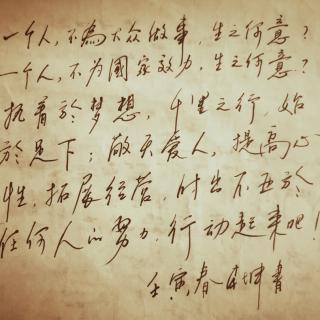 一个人,不為大众做事,生之何意?
一个人,不为國家效力,生之何意?
执着於梦想,千里之行,始
於足下;敬天爱人,提高心
性,拓展经营,付出不亚於
任何人的努力,行动起来吧!
壬寅春 書